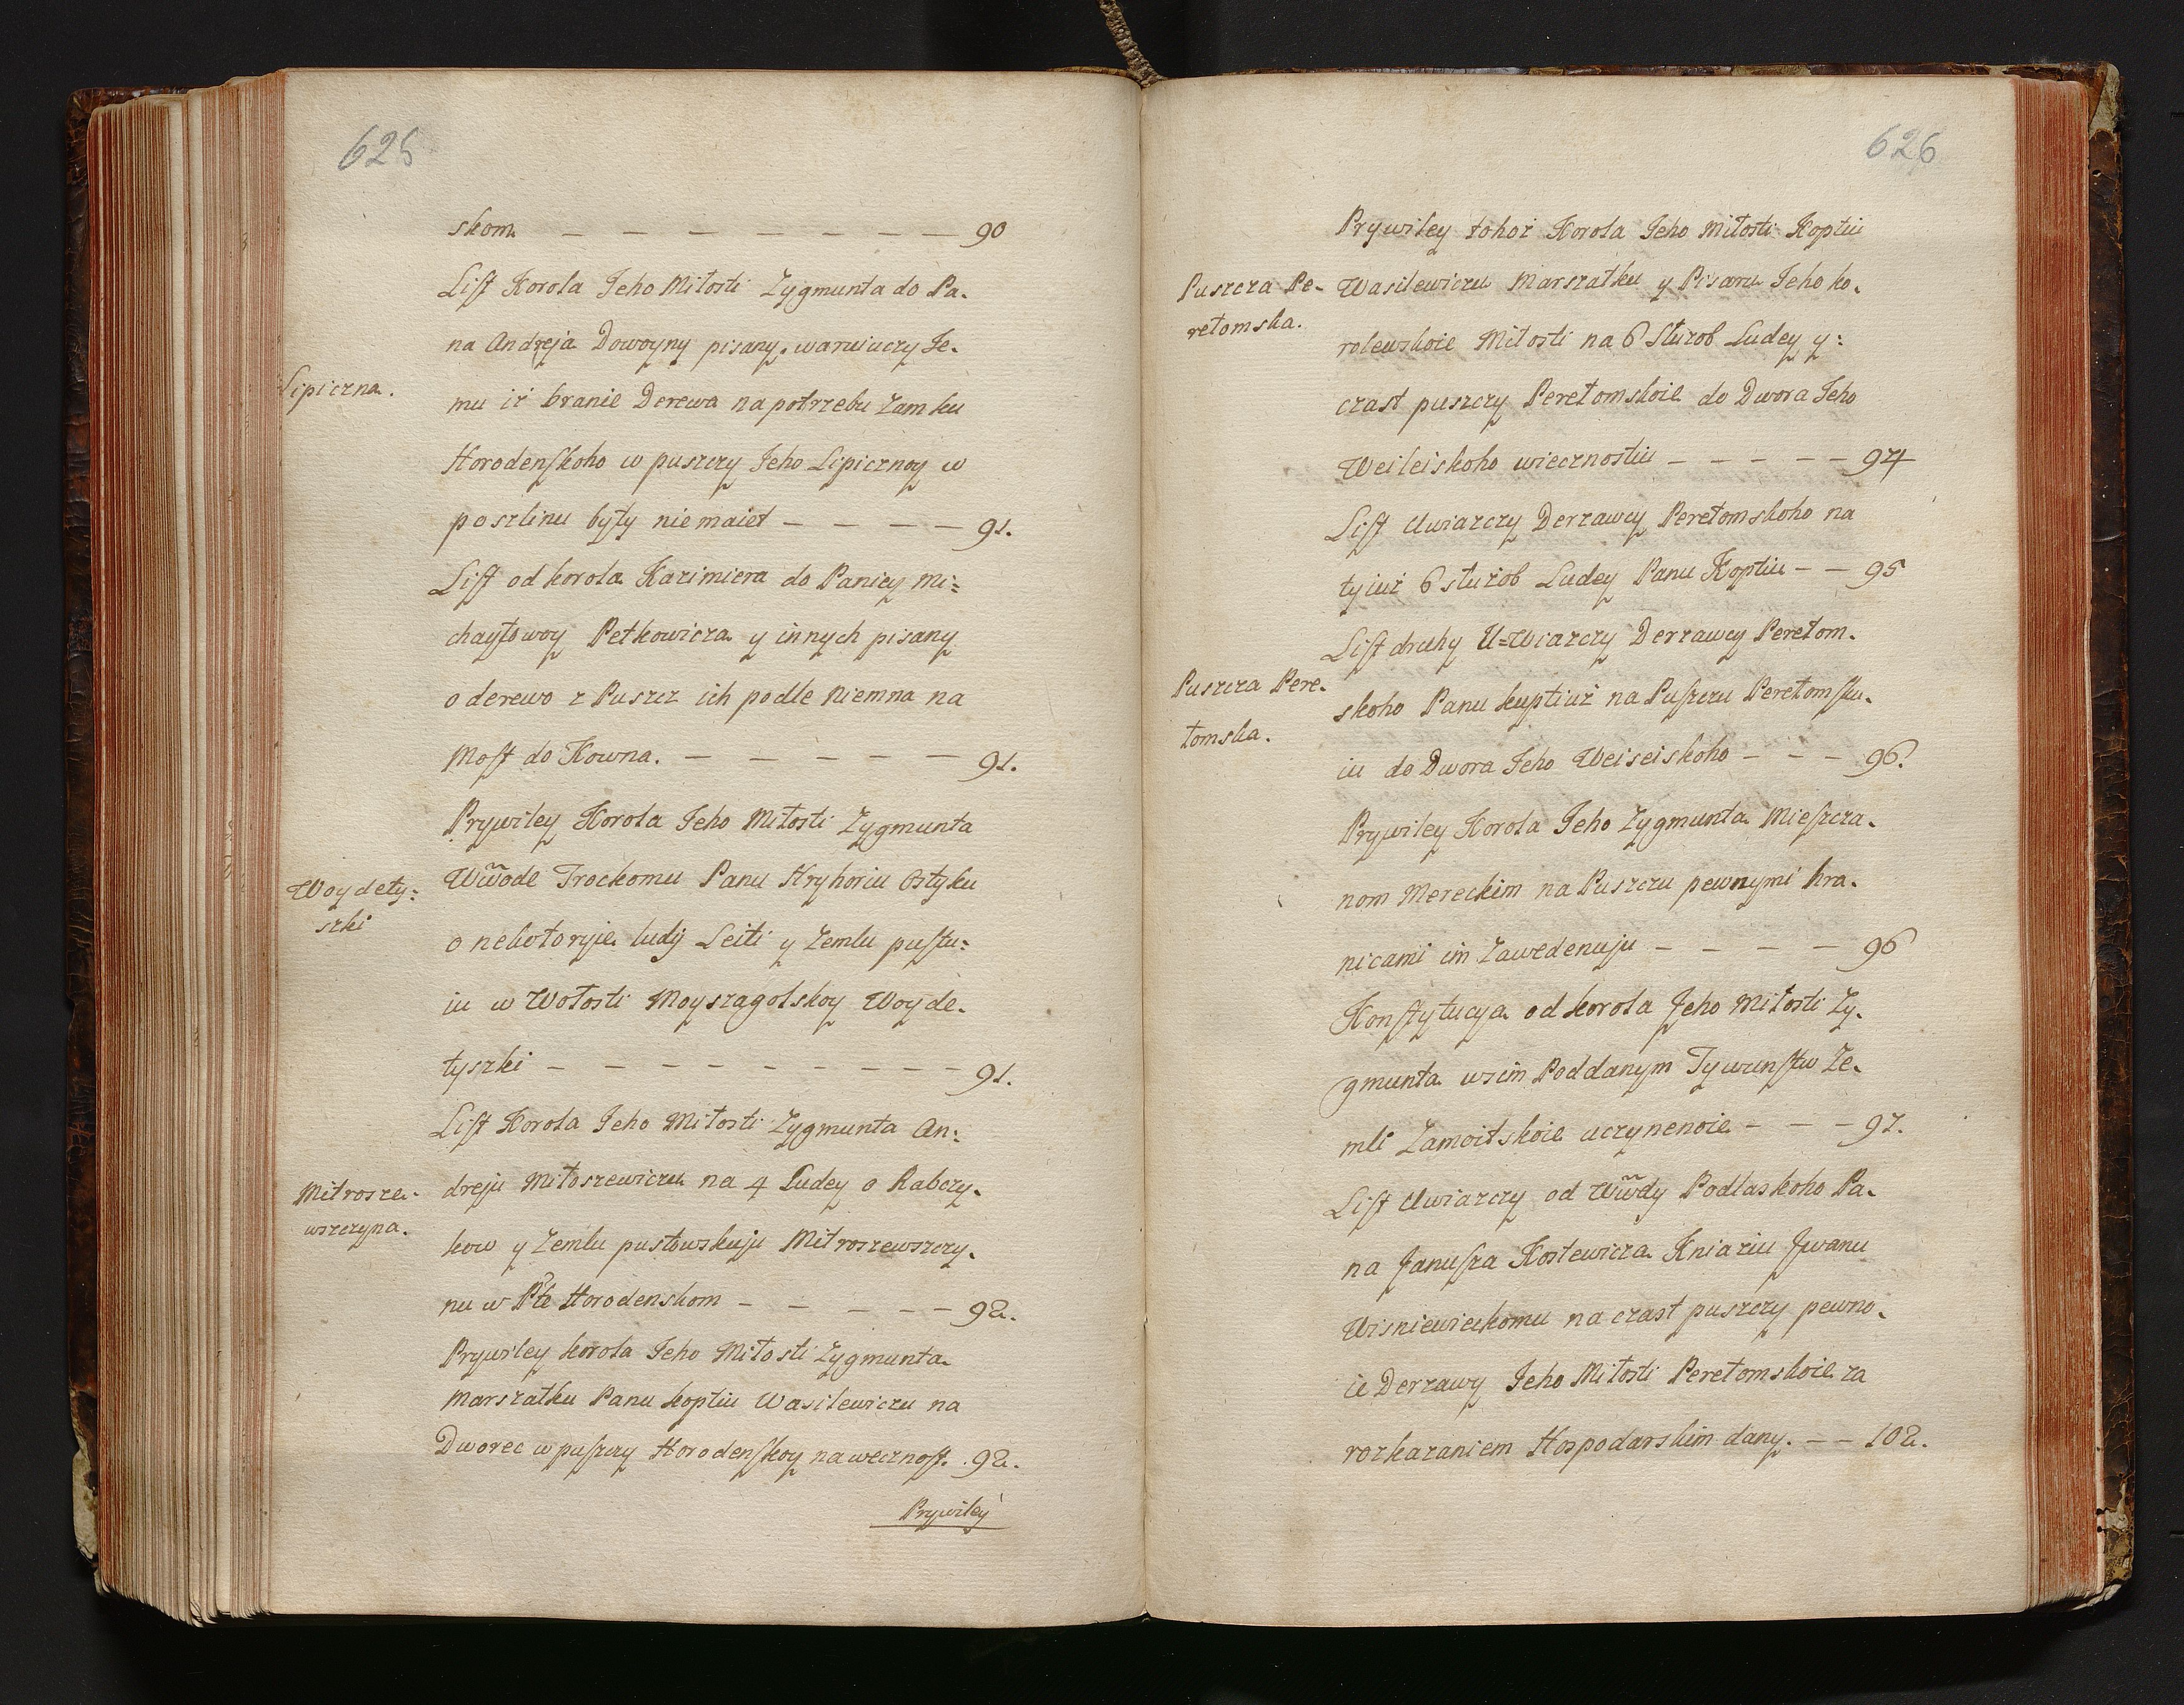 625
skom — — — — — — — — 90
List Korola Jeho Miłosti Zygmunta do Pa-
na Andreja Dowoyny pisany, waruiuczy Je-
Lipiczna.
mu iż branie Derewa na potrzebu Zamku
Horodenskoho w puszczy Jeho Lipicznoy w
poszlinu były niemaiet — — — — 91.
List od korola Kazimiera do Paniey Mi-
chayłowoy Petkowicza y innych pisany
o derewo z Puszcz ich podle Niemna na
Most do Kowna. — — — — — 91.
Prywiley Korola Jeho Miłosti Zygmunta
Woydety-
szki
Wwode Trockomu Panu Hryhoriu Ostyku
o nekotoryje ludij Leiti y Zemlu pustu-
iu w Wołosti Moyszagolskoy Woyde-
tyszki — — — — — — — — 91.
List Korola Jeho Miłosti Zygmunta An-
Mitrosze-
wszczyna.
dreju Miłoszewiczu na 4 Ludey o Rabczy-
kow y Zemlu pustowskuju Mitroszewszczy-
nu w Pte Horodenskom — — — — — 92.
Prywiley korola Jeho Miłosti Zygmunta
Marszałku Panu koptiu Wasilewiczu na
Dworec w puszczy Horodenskoy na wecznost. 92.
Prywiley
626
Prywiley tohoż Korola Jeho Miłosti Koptiu
Puszcza Pe-
retomska.
Wasilewiczu Marszałku y Pisaru Jeho ko-
rolewskoie Miłosti na 6 Służob Ludey y:
czast puszczy Peretomskoie do Dwora Jeho
Weileiskoho wiecznostiu — — — — — 94
List Uwiazczy Derzawcy Peretomskoho na
tyiuż 6 służob Ludey Panu Koptiu — — 95
List druhy U=Wiazczy Derzawcy Peretom-
Puszcza Pere-
tomska.
skoho Panu kuptiuż na Puszczu Peretomsku-
iu do Dwora Jeho Weiseiskoho — — — 96.
Prywiley Korola Jeho Zygmunta Mieszcza-
nom Mereckim na Puszczu pewnymi hra-
nicami im Zawedenuju — — — — 96
Konstytucya od korola Jeho Miłosti Zy-
gmunta wsim Poddanym Tywunstw Ze-
mli Zamoitskoie uczynenoie — — — 97.
List Uwiazczy od Wwdy Podlaskoho Pa-
na Janusza Kostewicza Kniaziu Jwanu
Wisniewieckomu na czast puszczy pewno-
ie Derzawy Jeho Miłosti Peretomskoie za
rozkazaniem Hospodarskim dany. — — 102.